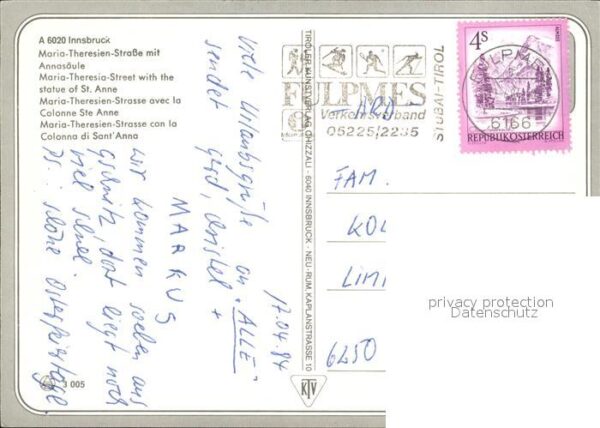 A 6020 Innsbruck
Maria-Theresien-Straße mit
Annasäule
Maria-Theresia-Street with the
statue of St. Anne
Maria-Theresien-Strasse avec la
Colonne Ste Anne
Maria-Theresien-Strasse con la
Colonna di Sant'Anna
3 005
17.04.84
Viele Urlaubsgrüße an "ALLE"
sendet Gerd, Christel +
MARKUS
wir kommen soeben aus
Gschnitz, dort liegt noch
viel Schnee.
PS.: schöne Osterfeiertage.
TIROLER KUNSTVERLAG CHIZZALI · 6040 INNSBRUCK · NEU-RUM, KAPLANSTRASSE 10
KTV
FULPMES
Verkehrsverband
05225/2235
STUBAI-TIROL
FULPMES
6166
4 S
REPUBLIK ÖSTERREICH
FAM.
KOL
LIM
6250
privacy protection
Datenschutz